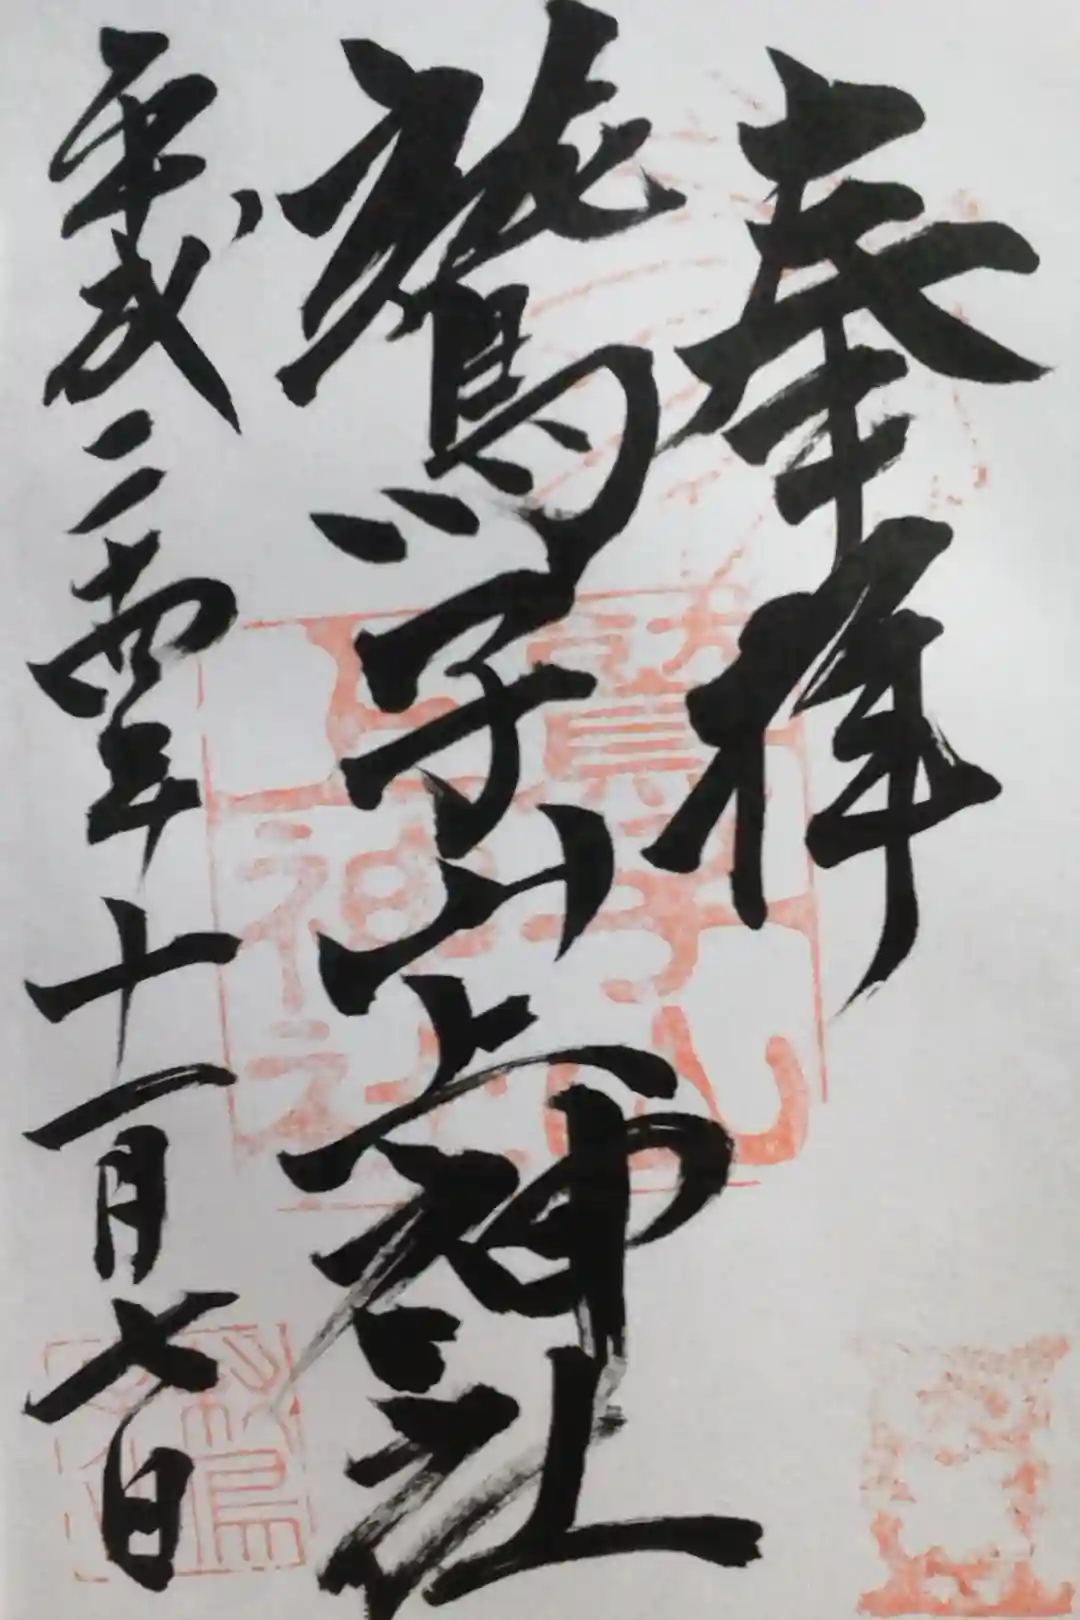 奉拝
鷲子山上神社
平成二十四年十一月七日
鷲子山
上神社